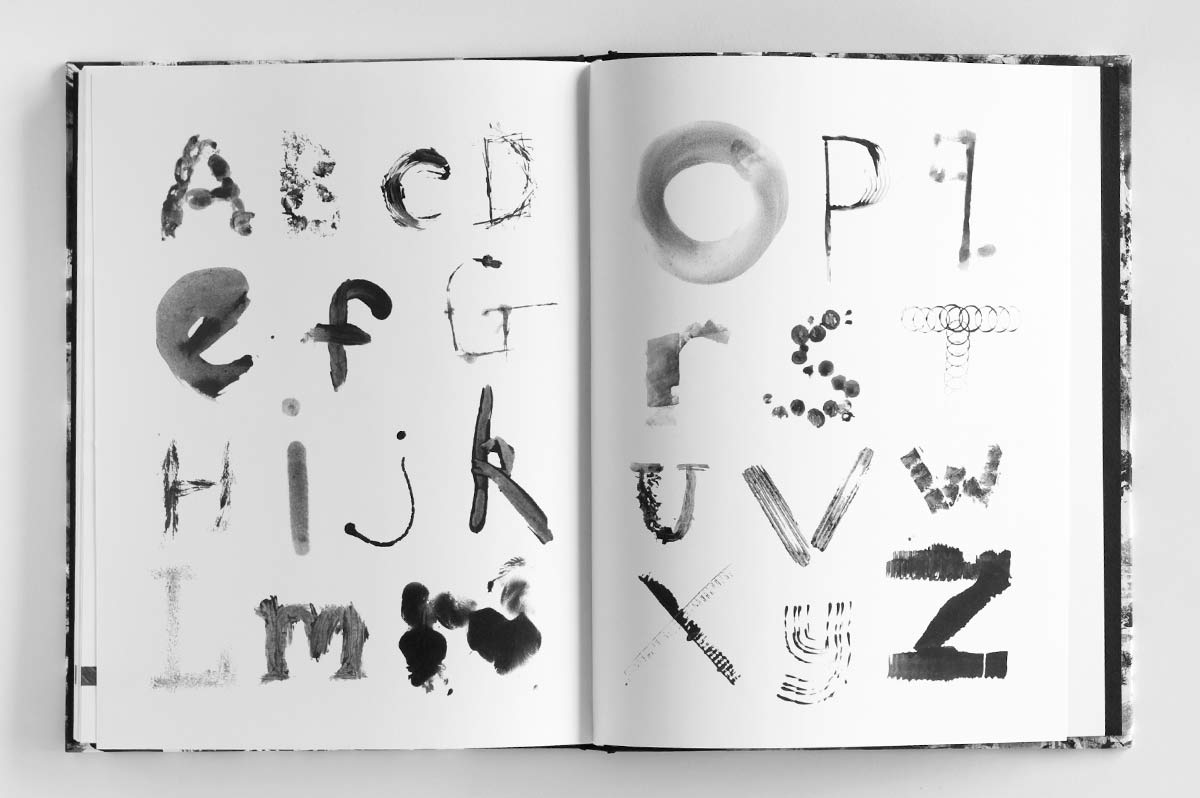 A B C D
e f G
H i j k
L m N
O P q
r S T
U V W
X y Z